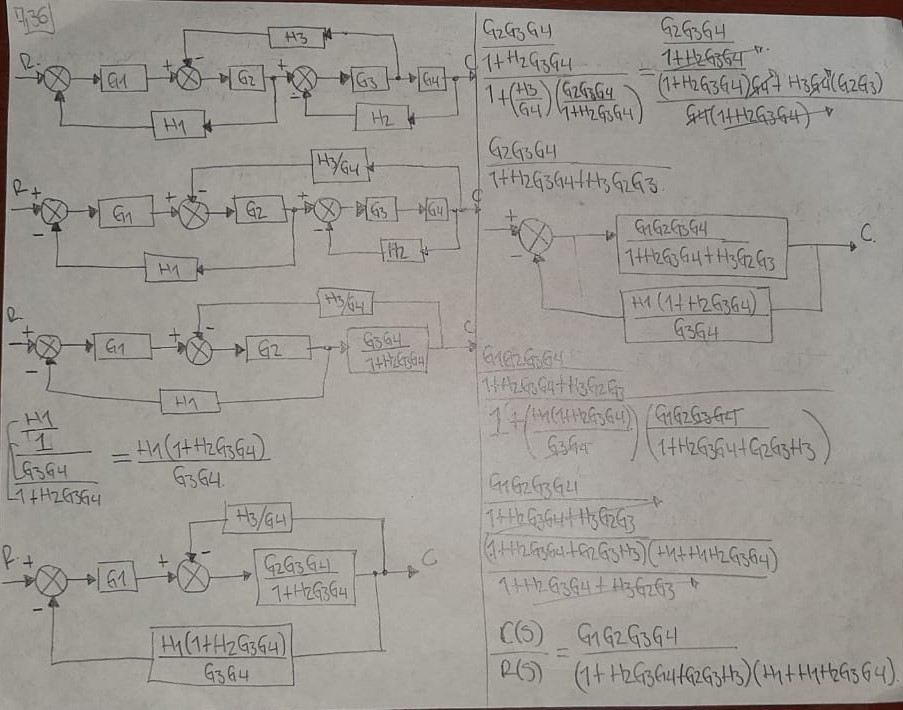 7,36
H3
R + G1 + G2 + G3 G4 C
- - -
H1 H2
H3/G4
R + G1 + G2 + G3 G4 C
- - -
H1 H2
H3/G4
R + G1 + G2 G3G4/(1+H2G3G4) C
- -
H1
H1/(1/(G3G4/(1+H2G3G4))) = H1(1+H2G3G4)/(G3G4)
H3/G4
R + G1 + G2G3G4/(1+H2G3G4) C
- -
H1(1+H2G3G4)/(G3G4)
(G2G3G4/(1+H2G3G4))/(1+(H3/G4)(G2G3G4/(1+H2G3G4))) = (G2G3G4/(1+H2G3G4))/(((1+H2G3G4)G4+H3G4(G2G3))/(G4(1+H2G3G4)))
G2G3G4/(1+H2G3G4+H3G2G3)
+ G1G2G3G4/(1+H2G3G4+H3G2G3) C
- H1(1+H2G3G4)/(G3G4)
(G1G2G3G4/(1+H2G3G4+H3G2G3))/(1+(H1(1+H2G3G4)/(G3G4))(G1G2G3G4/(1+H2G3G4+G2G3H3)))
(G1G2G3G4/(1+H2G3G4+H3G2G3))/((1+H2G3G4+G2G3H3)(H1+H1H2G3G4)/(1+H2G3G4+H3G2G3))
C(S)/R(S) = G1G2G3G4/((1+H2G3G4+G2G3H3)(H1+H1H2G3G4))